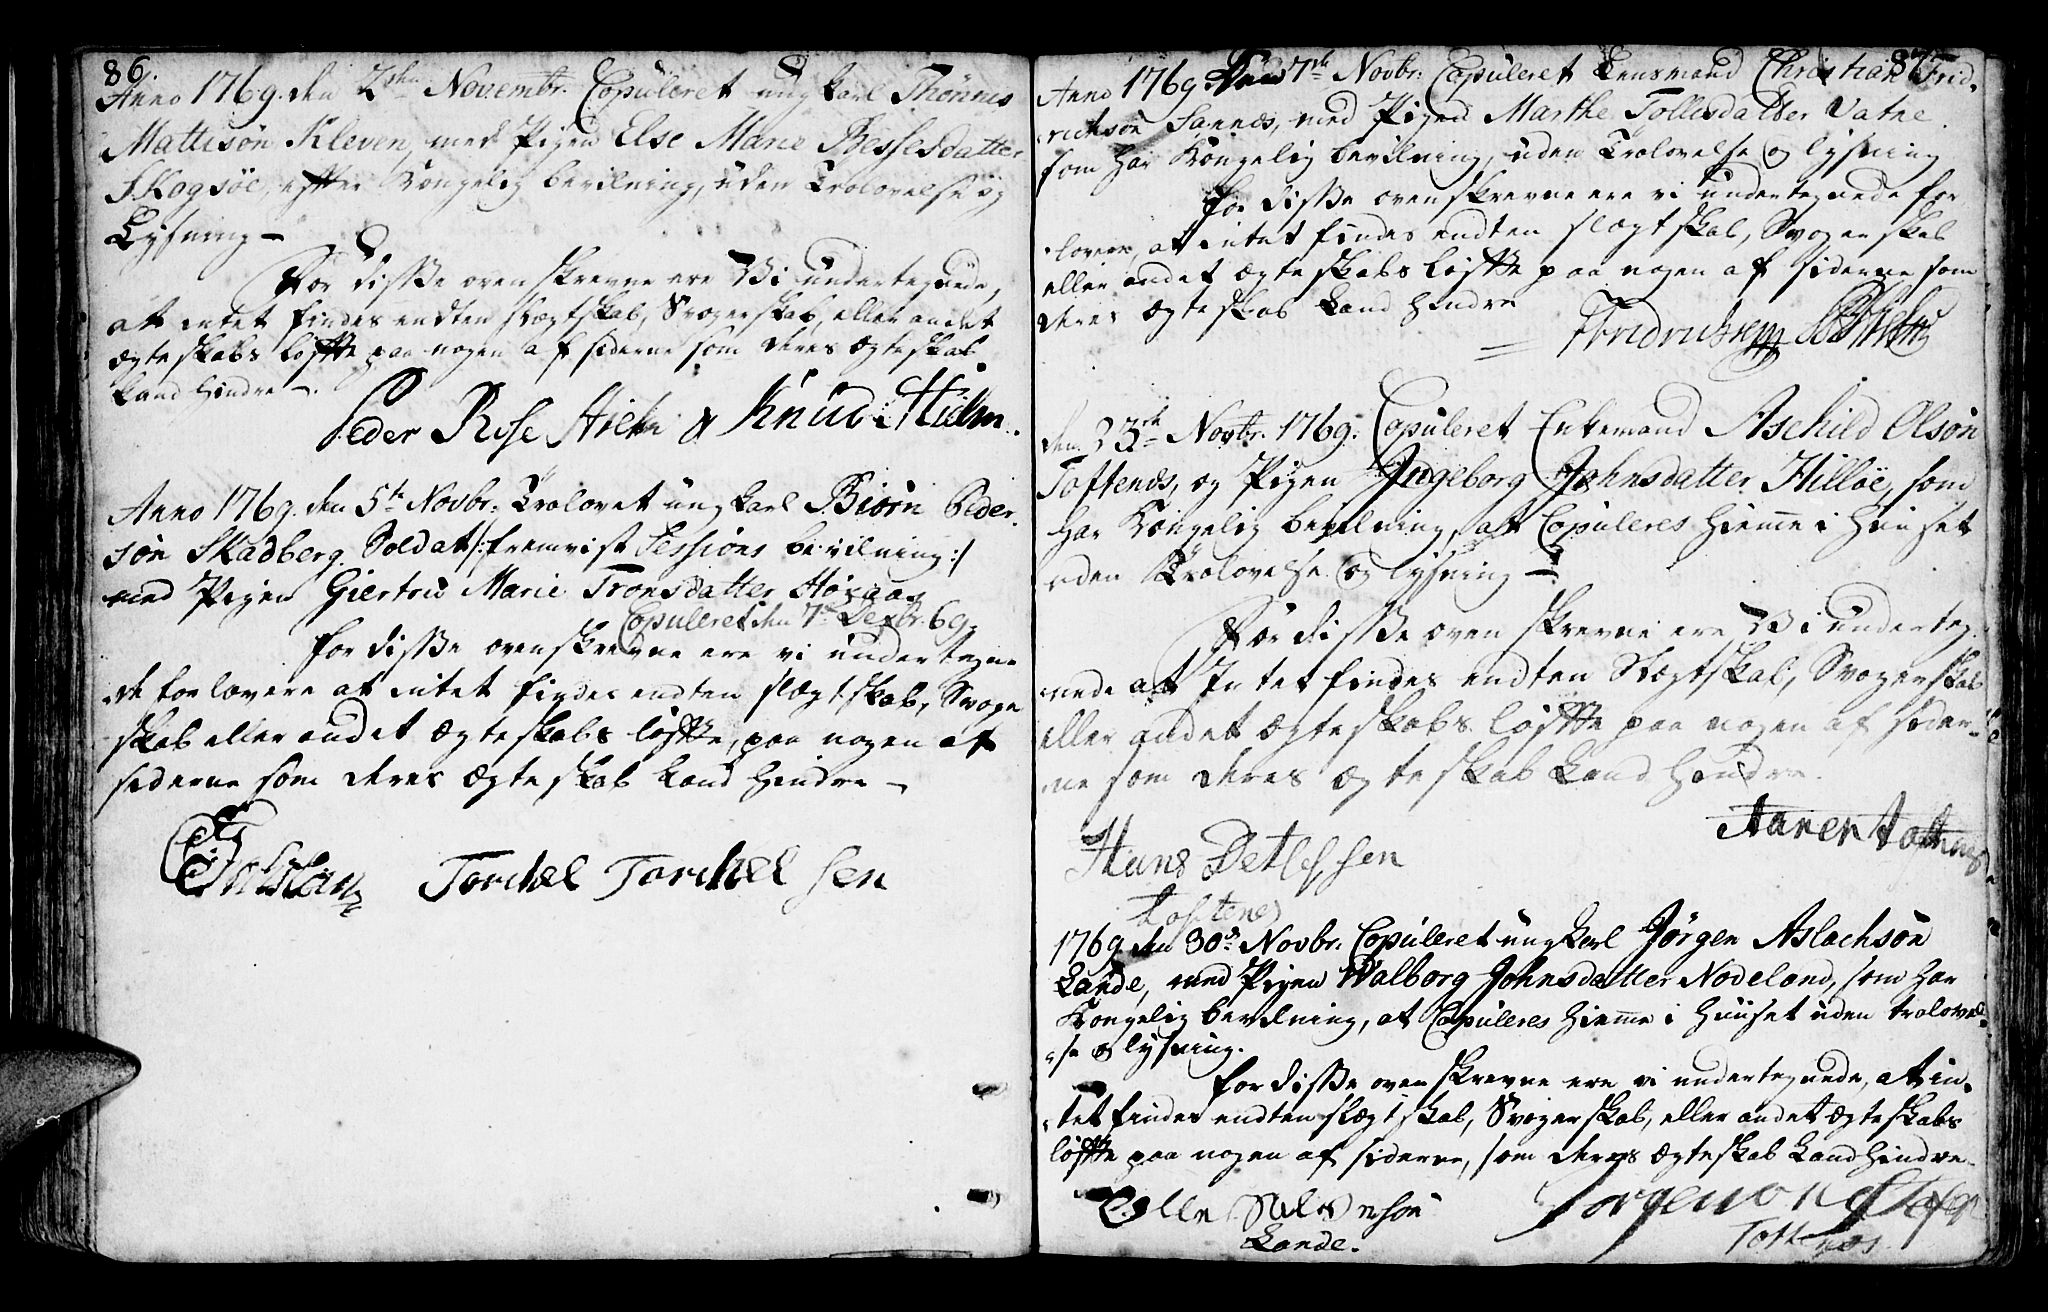 86.
Anno 1769. den 2den Novembr. Copuleret ungkarl Thönnes
Mattisön Kleven, med Pigen Else Marie Bessesdatter
Skogsöe, efter Kongelig bevilning, uden Trolovelse og
Lysning –
For disse ovenskrevne ere Vi undertegnede,
at intet findes endten slægtskab, Svogerskab, eller andet
ægteskabs løffte paa nogen af siderne som deres ægteskab
kand hindre –.
Peder Rose Knud Hielm.
Anno 1769. den 5te Novbr: Trolovet ungkarl Biörn Peder-
sön Skadberg Soldat /: fremvist Sessions bevilning :/
med Pigen Giertrud Marie Tronsdatter
Copuleret den 7de Decbr. 69.
for disse ovenskrevne ere vi undertegne
de forlovere at intet findes endten slægtskab, Svoger
skab eller andet ægteskabs løffte, paa nogen af
siderne som deres ægteskab kand hindre –
Torchel Torchelsen
87.
Anno 1769 Den 7de Novbr: Copuleret Lensmand Christian Frid-
richsön Sannes, med Pigen Marthe Tollisdatter Vatne.
som har Kongelig bevilning, uden Trolovelse og lysning
for disse ovenskrevne ere vi undertegnede for-
lovere, at intet findes endten slægtskab, Svogerskab
eller andet ægteskabs løffte paa nogen af siderne som
deres ægteskab kand hindre
den 23de Novbr. 1769. Copuleret Enkemand Aschild Olsön
Toftenes, og Pigen Ingeborg Johnsdatter Hillöe, som
har Kongelig bevilning, at Copuleres hieme i Huuset
uden Trolovelse og lysning –
For disse ovenskrevne ere Vi underteg-
nede at Intet findes endten Slægtskab, Svogerskab
eller andet ægteskabs løffte paa nogen af sider-
ne som deres ægteskab kand hindre.
Hans Detlefsen
Toftenes
Aanen Toftnes
1769 den 30de Novbr. Copuleret ungkarl Jörgen Aslachsön
Lande, med Pigen Walborg Johnsdatter Nodeland, som har
Kongelig bevilning, at Copuleres hieme i Huuset uden trolovel-
se og lysning.
for disse ovenskrevne ere vi undertegnede, at in-
tet findes endten slægtskab, Svogerskab, eller andet ægteskabs
løffte paa nogen af siderne, som deres ægteskab kand hindre
Olle
Lande.
Toftenes